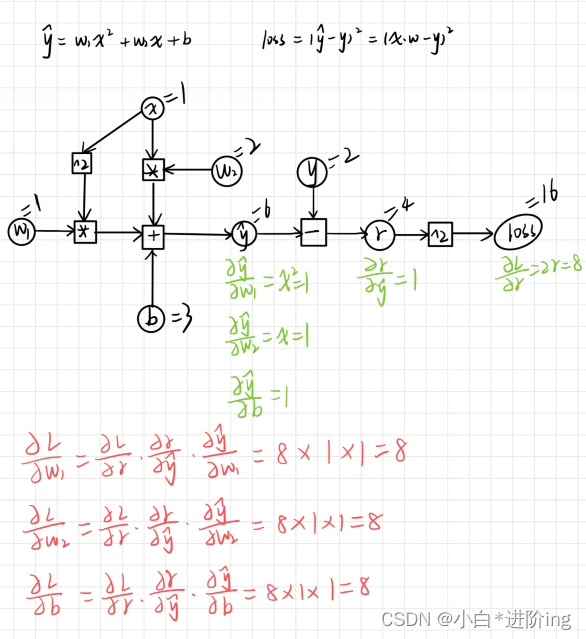 ŷ = w₁x² + w₂x + b
loss = (ŷ-y)² = (x·w-y)²
x =1
^2
*
w₂ =2
y =2
w₁ =1
*
+
ŷ =6
−
r =4
^2
loss =16
b =3
∂ŷ/∂w₁ = x²=1
∂r/∂ŷ = 1
∂L/∂r =2r=8
∂ŷ/∂w₂ = x=1
∂ŷ/∂b =1
∂L/∂w₁ = ∂L/∂r · ∂r/∂ŷ · ∂ŷ/∂w₁ = 8 × 1 × 1 = 8
∂L/∂w₂ = ∂L/∂r · ∂r/∂ŷ · ∂ŷ/∂w₂ = 8×1×1=8
∂L/∂b = ∂L/∂r · ∂r/∂ŷ · ∂ŷ/∂b = 8×1×1=8
CSDN @小白*进阶ing